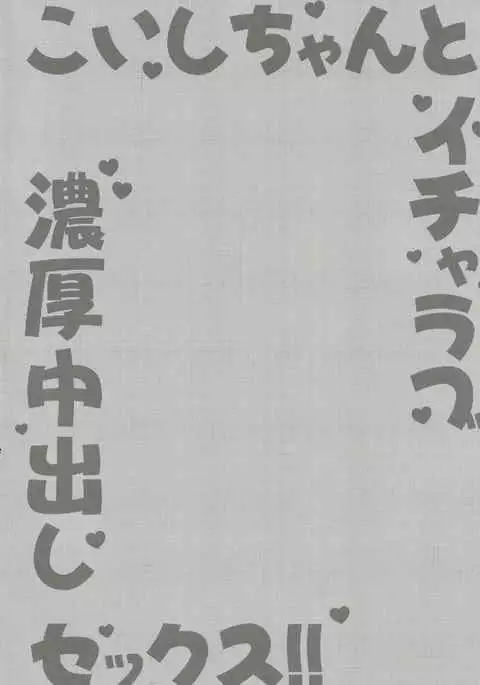 こいしちゃんと
イチャラブ
濃厚中出し
セックス!!